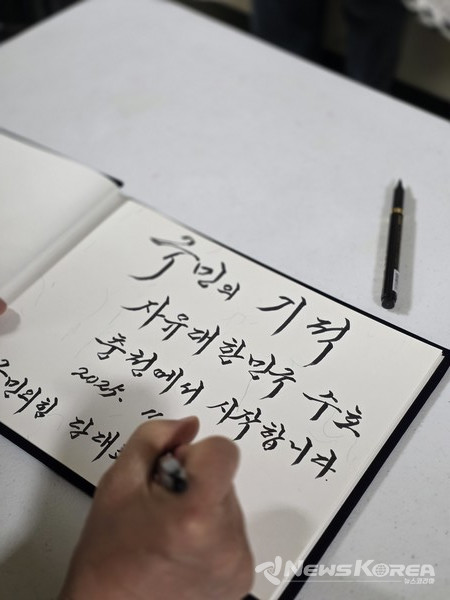 국민의 기적
자유대한민국 수호
충청에서 시작합니다.
2025. 11
국민의힘 당대표
NewsKorea
뉴스코리아